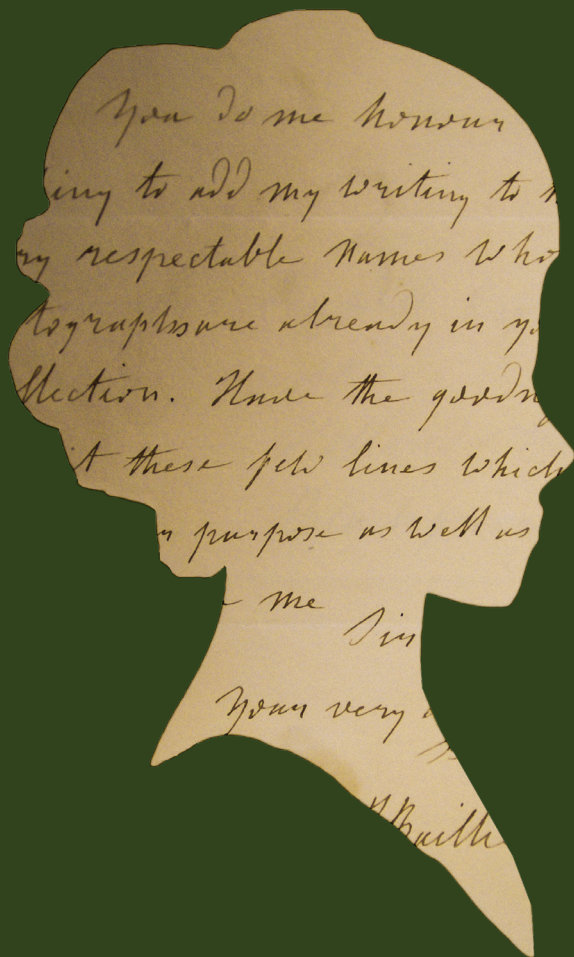 You do me honour
ing to add my writing to
ry respectable names who
tographs are already in yo
llection. Have the goodn
it these few lines which
r purpose as well as
me
Sir
Your very
Baillie